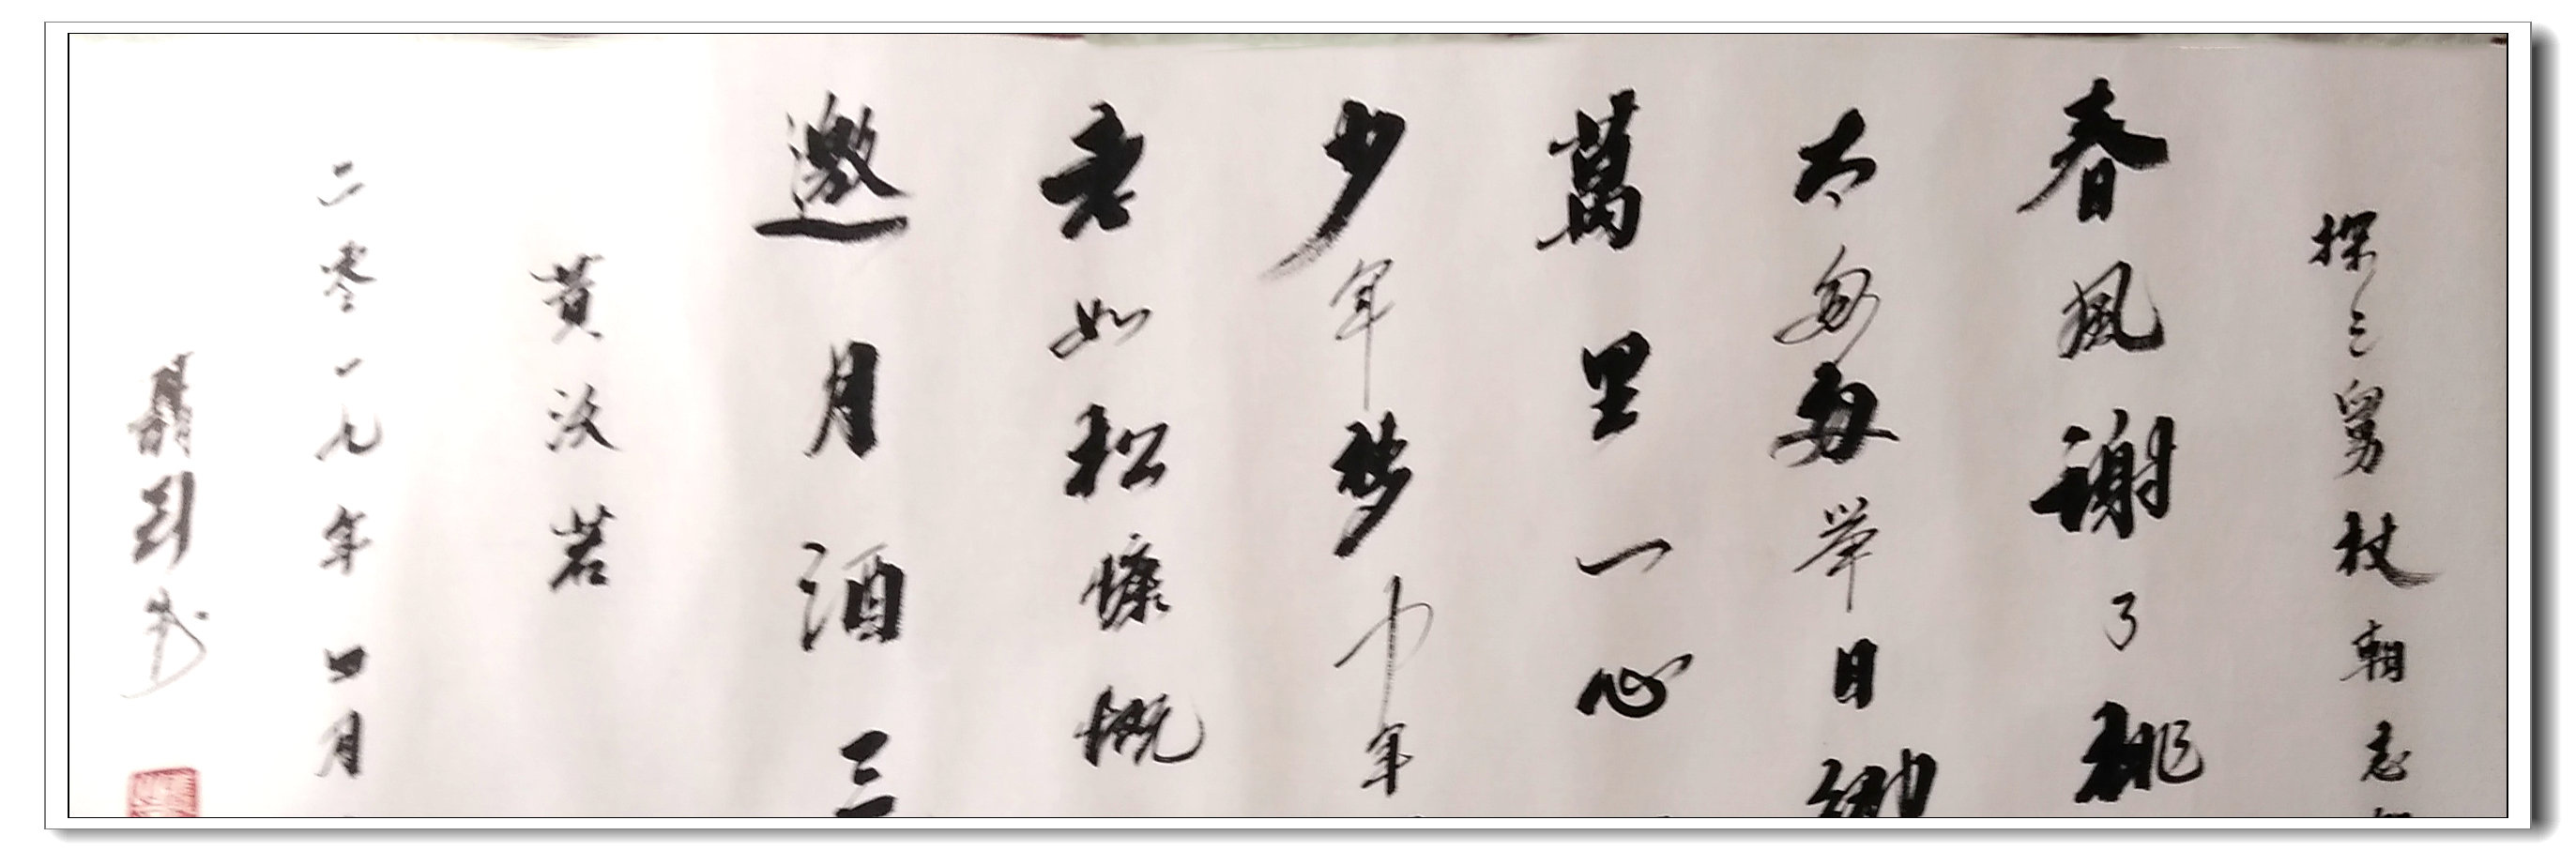 探三舅杖朝志
春風謝了桃
大每每举目
萬里一心
少年梦中年
老如松慷慨
邀月酒三
黄汝若
二零一九年四月